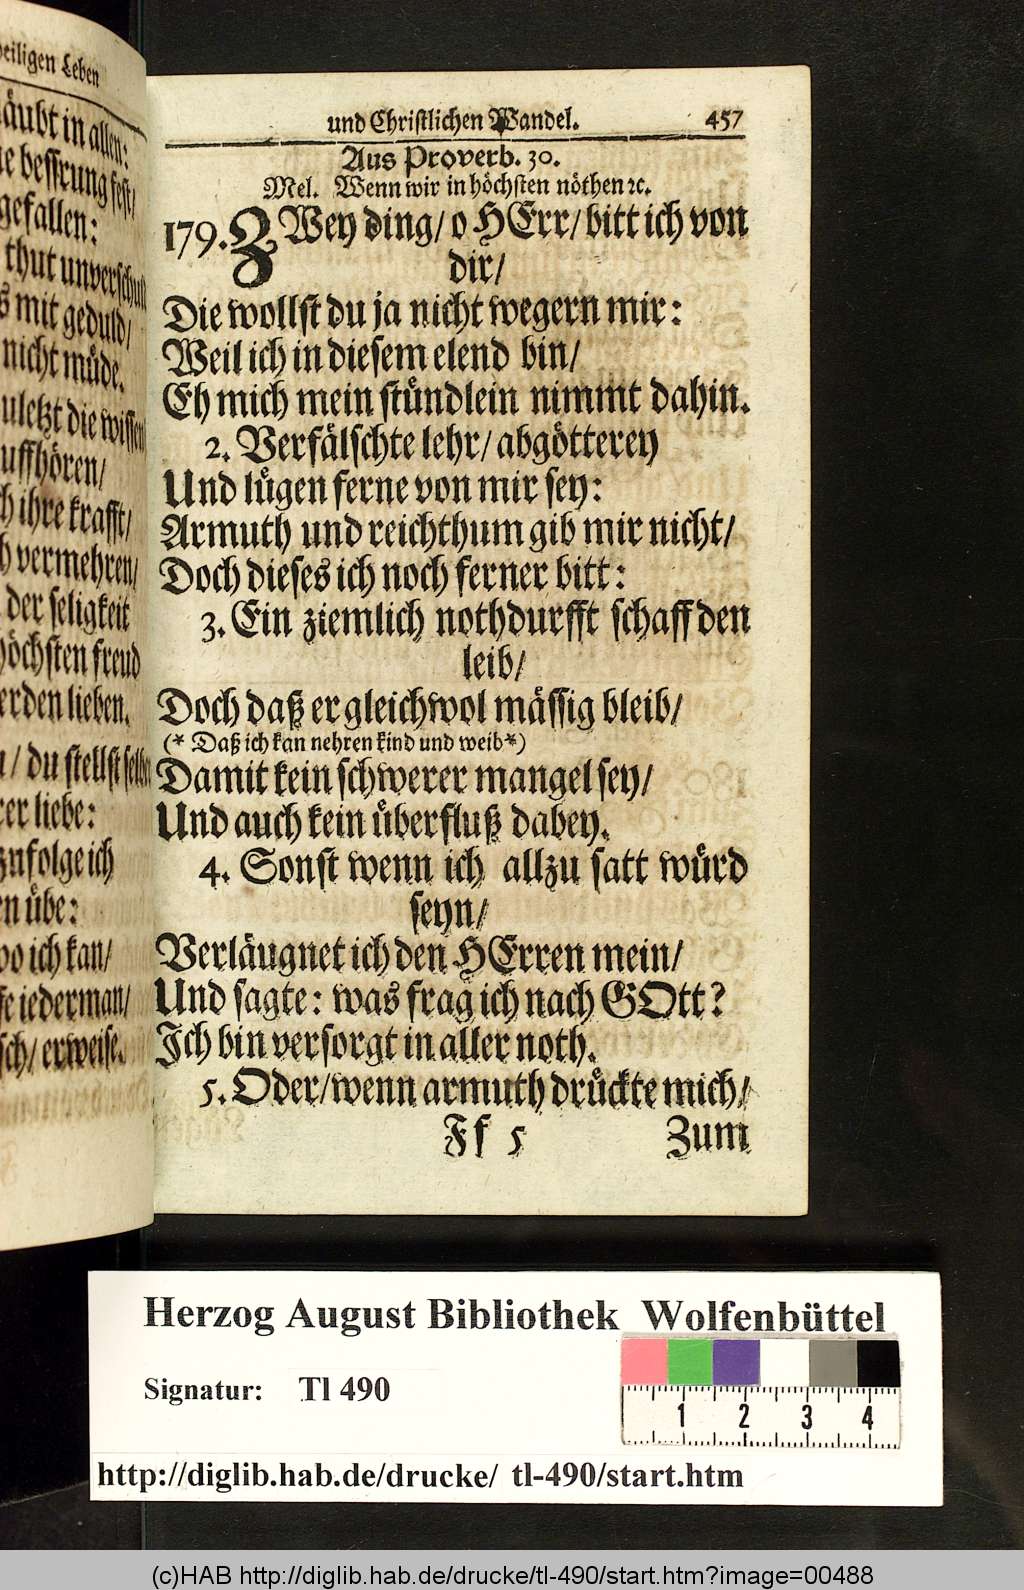 heiligen Leben
läubt in allen:
ne bessrung fest/
gefallen:
thut unverschuldt
s mit geduld/
nicht müde.
uletzt die wissen
uffhören/
ch ihre krafft/
h vermehren/
der seligkeit
höchsten freud
erden lieben.
n/ du stellst selber
rer liebe:
zufolge ich
en übe:
wo ich kan/
fe iederman/
sch/ erweise.
und Christlichen Wandel. 457
Aus Proverb. 30.
Mel. Wenn wir in höchsten nöthen ꝛc.
179. ZWey ding/ o HErr/ bitt ich von
dir/
Die wollst du ja nicht wegern mir:
Weil ich in diesem elend bin/
Eh mich mein stündlein nimmt dahin.
2. Verfälschte lehr/ abgötterey
Und lügen ferne von mir sey:
Armuth und reichthum gib mir nicht/
Doch dieses ich noch ferner bitt:
3. Ein ziemlich nothdurfft schaff den
leib/
Doch daß er gleichwol mässig bleib/
(* Daß ich kan nehren kind und weib*)
Damit kein schwerer mangel sey/
Und auch kein überfluß dabey.
4. Sonst wenn ich allzu satt würd
seyn/
Verläugnet ich den HErren mein/
Und sagte: was frag ich nach GOtt?
Ich bin versorgt in aller noth.
5. Oder/ wenn armuth drückte mich/
Ff 5 Zum
Herzog August Bibliothek Wolfenbüttel
Signatur: Tl 490
1 2 3 4
http://diglib.hab.de/drucke/ tl-490/start.htm
(c)HAB http://diglib.hab.de/drucke/tl-490/start.htm?image=00488